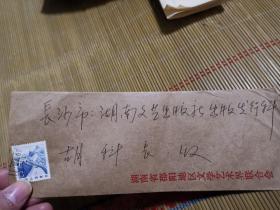 长沙市:湖南文艺出版社出版发行科
胡 科 长 收
湖南省邵阳地区文学艺术界联合会